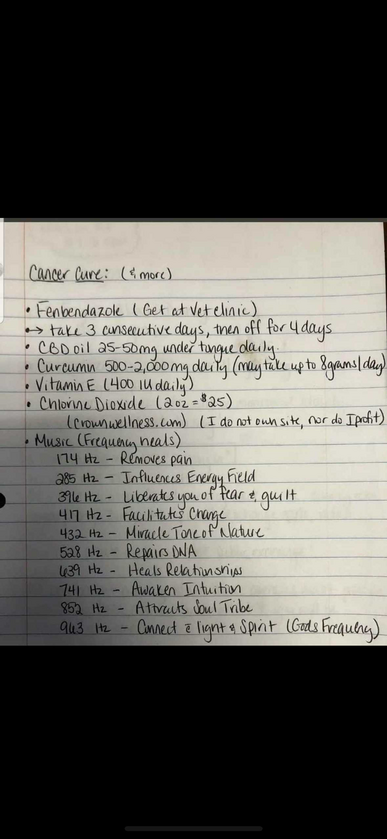 Cancer Cure: (& more)
• Fenbendazole (Get at Vet clinic)
•→ take 3 consecutive days, then off for 4 days
• CBD oil 25-50mg under tongue daily.
• Curcumn 500-2,000mg daily (may take up to 8grams/day)
• Vitamin E (400 IU daily)
• Chlorine Dioxide (2oz = $25)
(crownwellness.com) (I do not own site, nor do I profit)
• Music (Frequency heals)
174 Hz - Removes pain
285 Hz - Influences Energy Field
396 Hz - Liberates you of fear & guilt
417 Hz - Facilitates Change
432 Hz - Miracle Tone of Nature
528 Hz - Repairs DNA
639 Hz - Heals Relationships
741 Hz - Awaken Intuition
852 Hz - Attracts Soul Tribe
963 Hz - Connect c̄ light & Spirit (Gods Frequency)